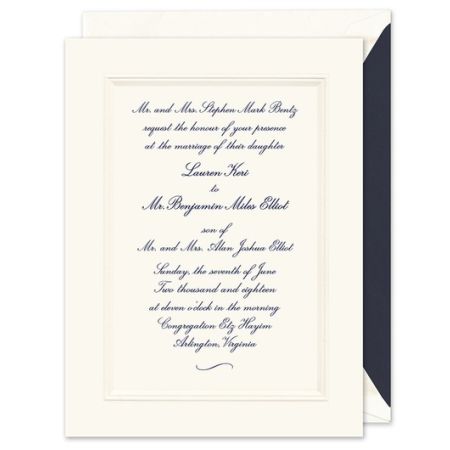 Mr. and Mrs. Stephen Mark Bentz
request the honour of your presence
at the marriage of their daughter
Lauren Keri
to
Mr. Benjamin Miles Elliot
son of
Mr. and Mrs. Alan Joshua Elliot
Sunday, the seventh of June
Two thousand and eighteen
at eleven o'clock in the morning
Congregation Etz Hayim
Arlington, Virginia